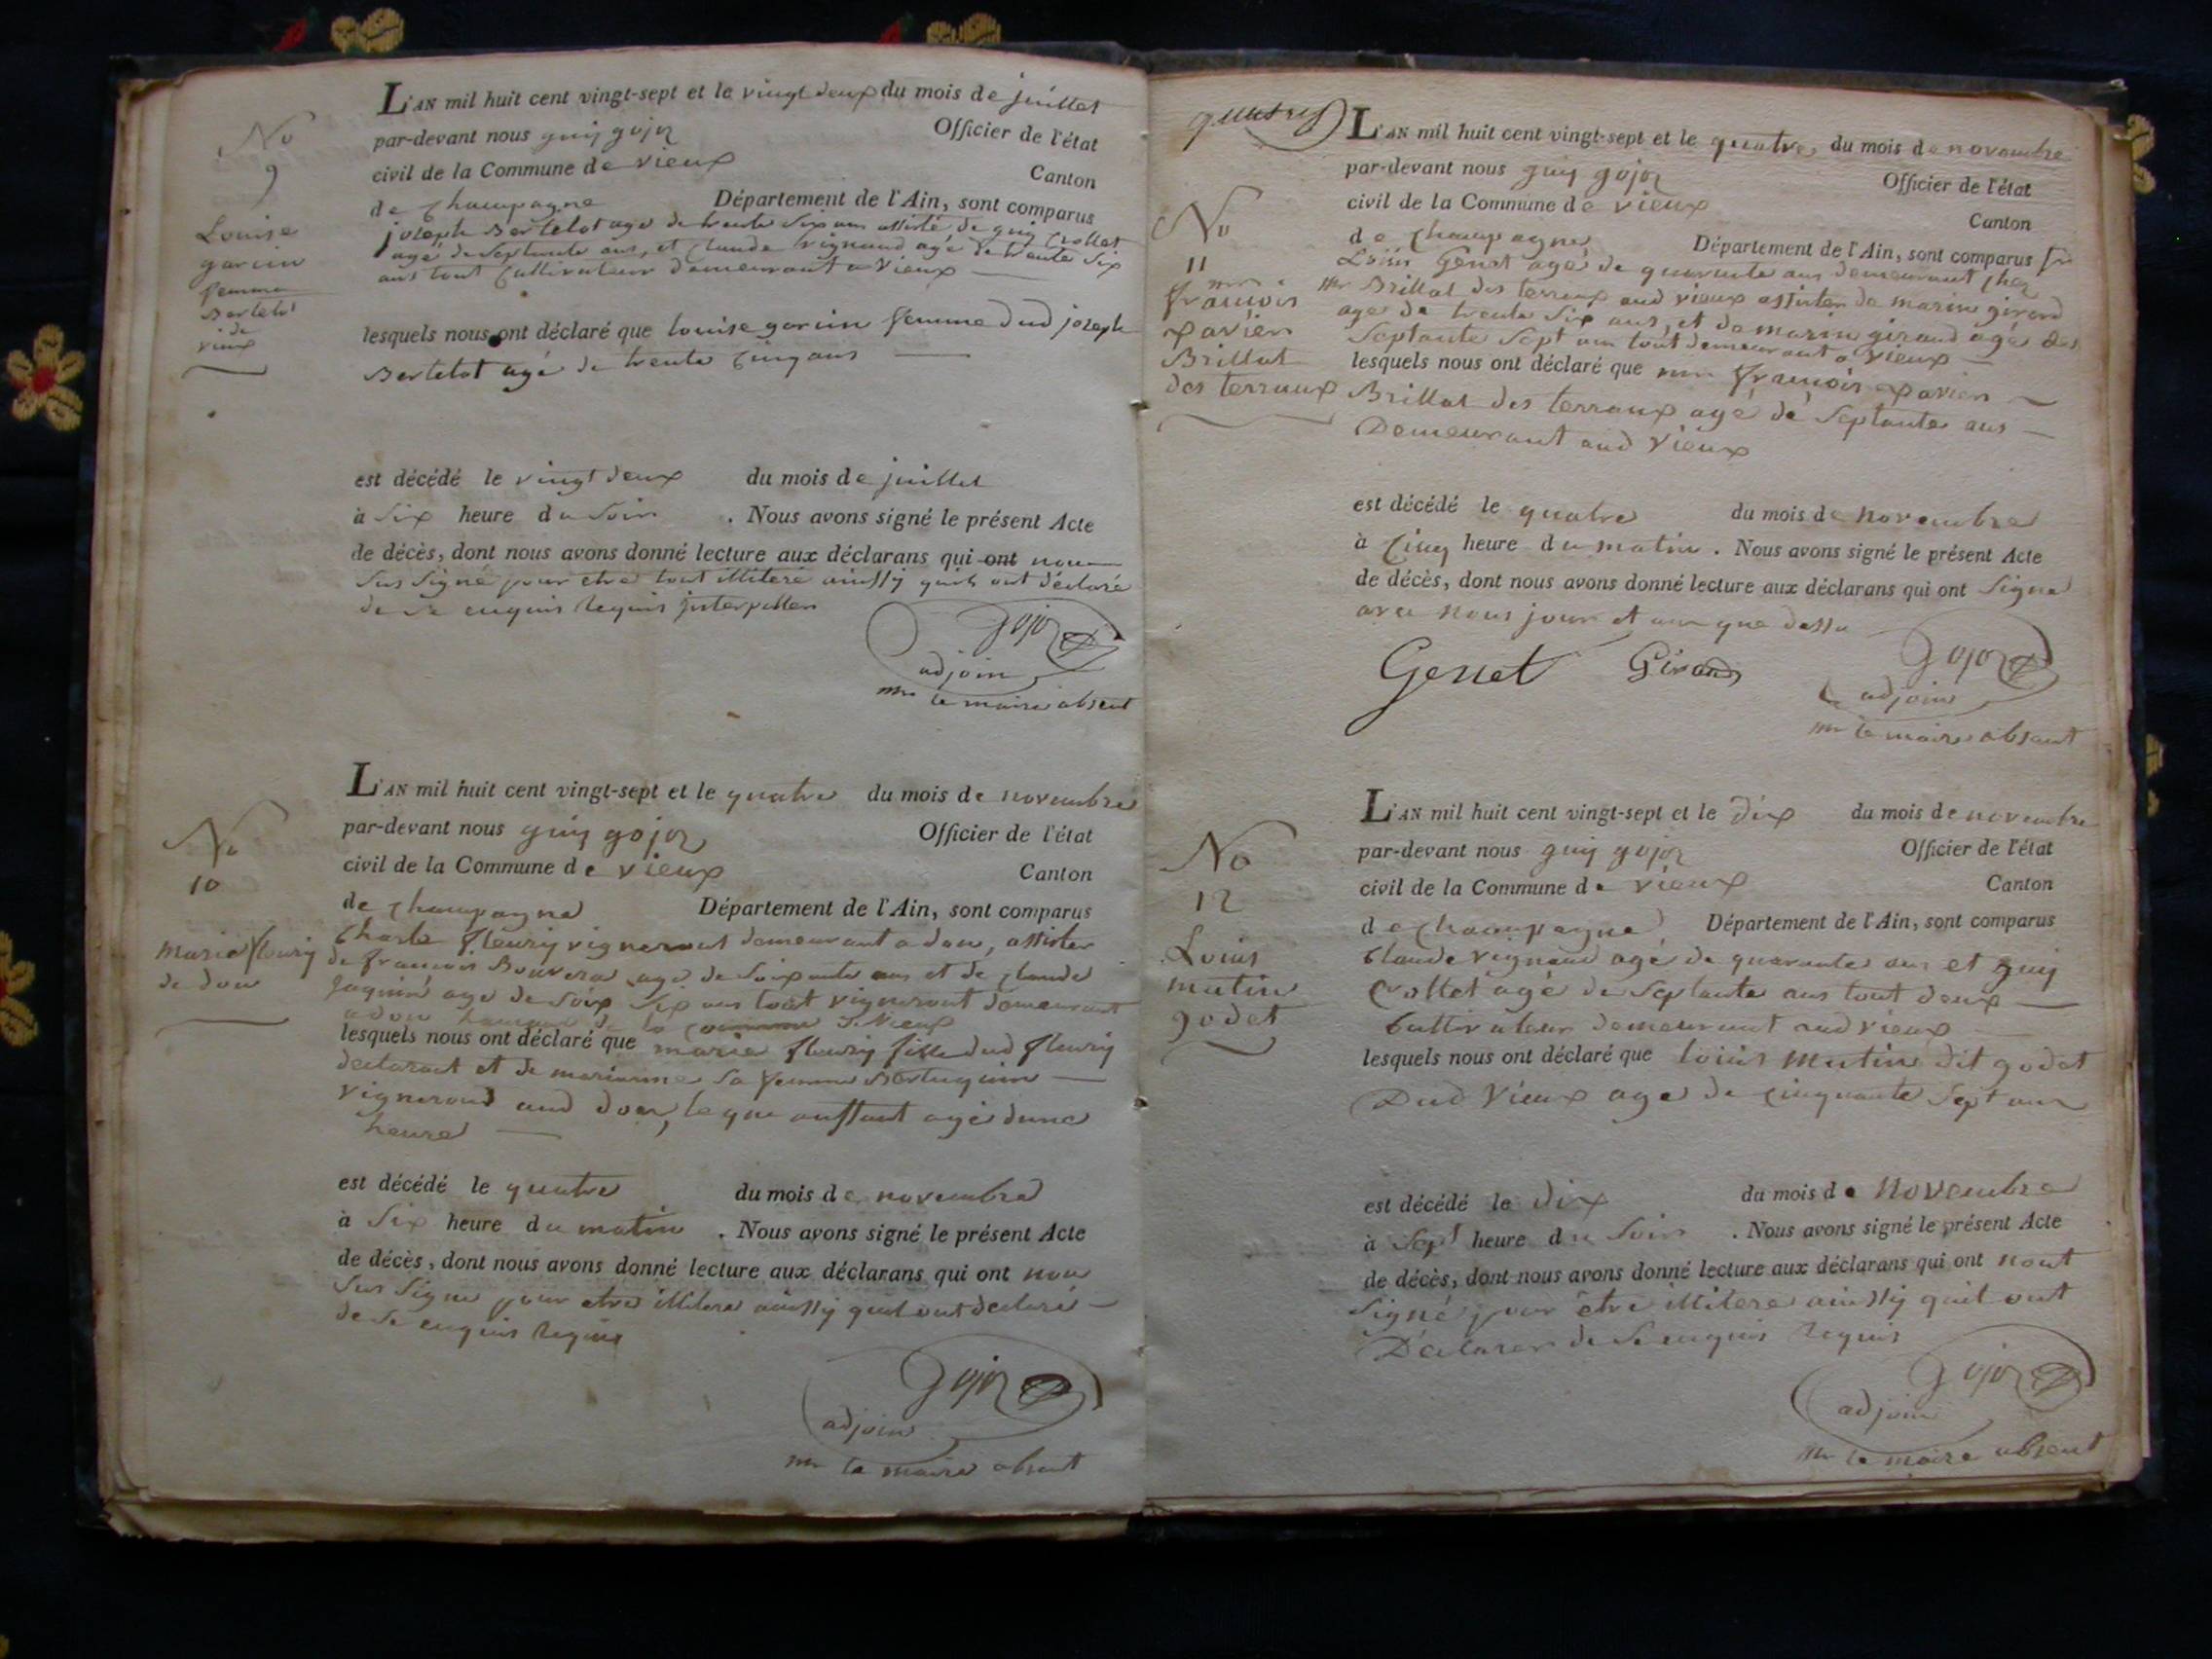 No
9
Louise
garin
femme
Bertelot
de
vieux
L'AN mil huit cent vingt-sept et le vingt deux du mois de juillet
par-devant nous guy gojoz Officier de l'état
civil de la Commune de vieux
Canton
de champagne Département de l'Ain, sont comparus
joseph Bertelot age de trente six ans assisté de guy Crollet
agé de septante ans, et Claude vignaud agé de trente six
ans tout Cultivateur demeurant a vieux
lesquels nous ont déclaré que louise garin femme dud joseph
Bertelot agé de trente cinq ans
est décédé le vingt deux du mois de juillet
à six heure du soir . Nous avons signé le présent Acte
de décès, dont nous avons donné lecture aux déclarans qui ont non
sus signé pour etre tout illiteré ainssy quils ont déclaré
de ce enquis requis interpeller
gojoz
adjoin
mr le maire absent
No
10
marie fleury
de don
L'AN mil huit cent vingt-sept et le quatre du mois de novembre
par-devant nous guy gojoz Officier de l'état
civil de la Commune de vieux
Canton
de champagne Département de l'Ain, sont comparus
Charle fleury vigneront demeurant a don, assister
de francois Bouvera agé de soixante ans et de Claude
age de soix six ans tout vigneront demeurant
a don hameau de la commune de vieux
lesquels nous ont déclaré que marie fleury fille dud fleury
declarant et de marianne sa femme
vigneront aud don, leque anffant agé dune
heure
est décédé le quatre du mois de novembre
à six heure du matin . Nous avons signé le présent Acte
de décès, dont nous avons donné lecture aux déclarans qui ont non
sus signe pour etre illitere ainssy quil ont declaré
de ce enquis requis
gojoz
adjoin
mr le maire absent
No
11
mr
francois
xavier
Brillat
des terraux
L'AN mil huit cent vingt-sept et le quatre du mois de novembre
par-devant nous guy gojoz Officier de l'état
civil de la Commune de vieux
Canton
de champagne Département de l'Ain, sont comparus
Louis Genet agé de quarante ans demeurant chez
Mr Brillat des terraux aud vieux assister de marin girand
age de trente six ans, et de marin girand agé de
septante sept ans tout demeurant a vieux
lesquels nous ont déclaré que mr francois xavier
Brillat des terraux agé de septante ans
Demeurant aud vieux
est décédé le quatre du mois de novembre
à cinq heure du matin . Nous avons signé le présent Acte
de décès, dont nous avons donné lecture aux déclarans qui ont signé
avec nous jour et an que dessu
Genet Girand gojoz
adjoin
mr le maire absant
No
12
Louis
mutin
godet
L'AN mil huit cent vingt-sept et le dix du mois de novembre
par-devant nous guy gojoz Officier de l'état
civil de la Commune de vieux
Canton
de champagne Département de l'Ain, sont comparus
Claude vignaud agé de quarante ans et guy
Crollet agé de septante ans tout deux
Cultivateur demeurant aud vieux
lesquels nous ont déclaré que louis mutin dit godet
Dud vieux agé de cinquante sept ans
est décédé le dix du mois de novembre
à sept heure du soir . Nous avons signé le présent Acte
de décès, dont nous avons donné lecture aux déclarans qui ont nont
signé pour être illitere ainssy quil ont
Déclarer de ce enquis requis
gojoz
adjoin
mr le maire absent